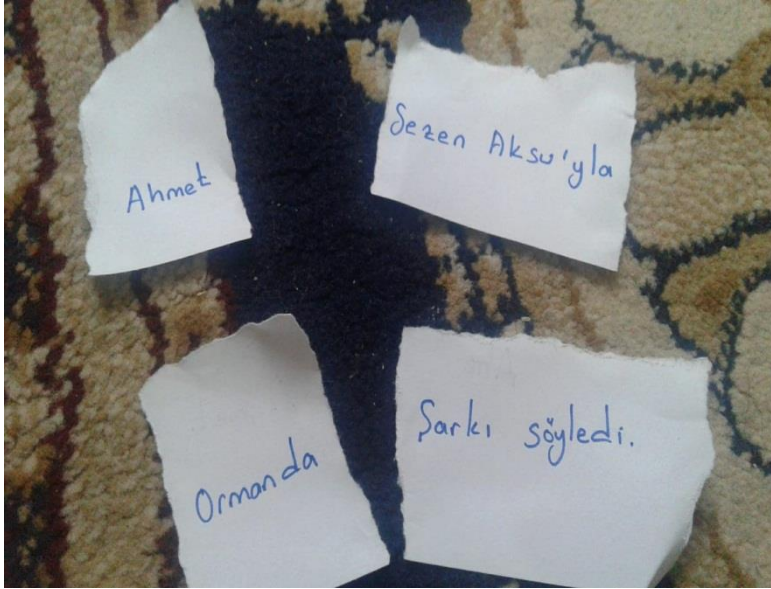 Ahmet
Sezen Aksu'yla
Ormanda
Şarkı söyledi.